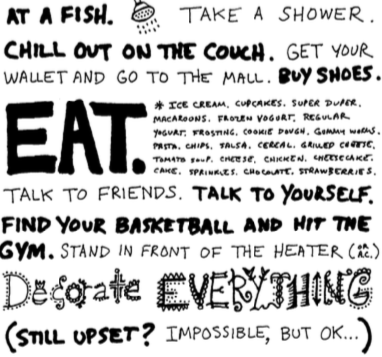 AT A FISH. TAKE A SHOWER.
CHILL OUT ON THE COUCH. GET YOUR
WALLET AND GO TO THE MALL. BUY SHOES.
EAT.
* ICE CREAM. CUPCAKES. SUPER DUPER.
MACAROONS. FROZEN YOGURT. REGULAR
YOGURT. FROSTING. COOKIE DOUGH. GUMMY WORMS.
PASTA. CHIPS. SALSA. CEREAL. GRILLED CHEESE.
TOMATO SOUP. CHEESE. CHICKEN. CHEESECAKE.
CAKE. SPRINKLES. CHOCOLATE. STRAWBERRIES.
TALK TO FRIENDS. TALK TO YOURSELF.
FIND YOUR BASKETBALL AND HIT THE
GYM. STAND IN FRONT OF THE HEATER (OR AC.)
Decorate EVERYTHING
(STILL UPSET? IMPOSSIBLE, BUT OK...)